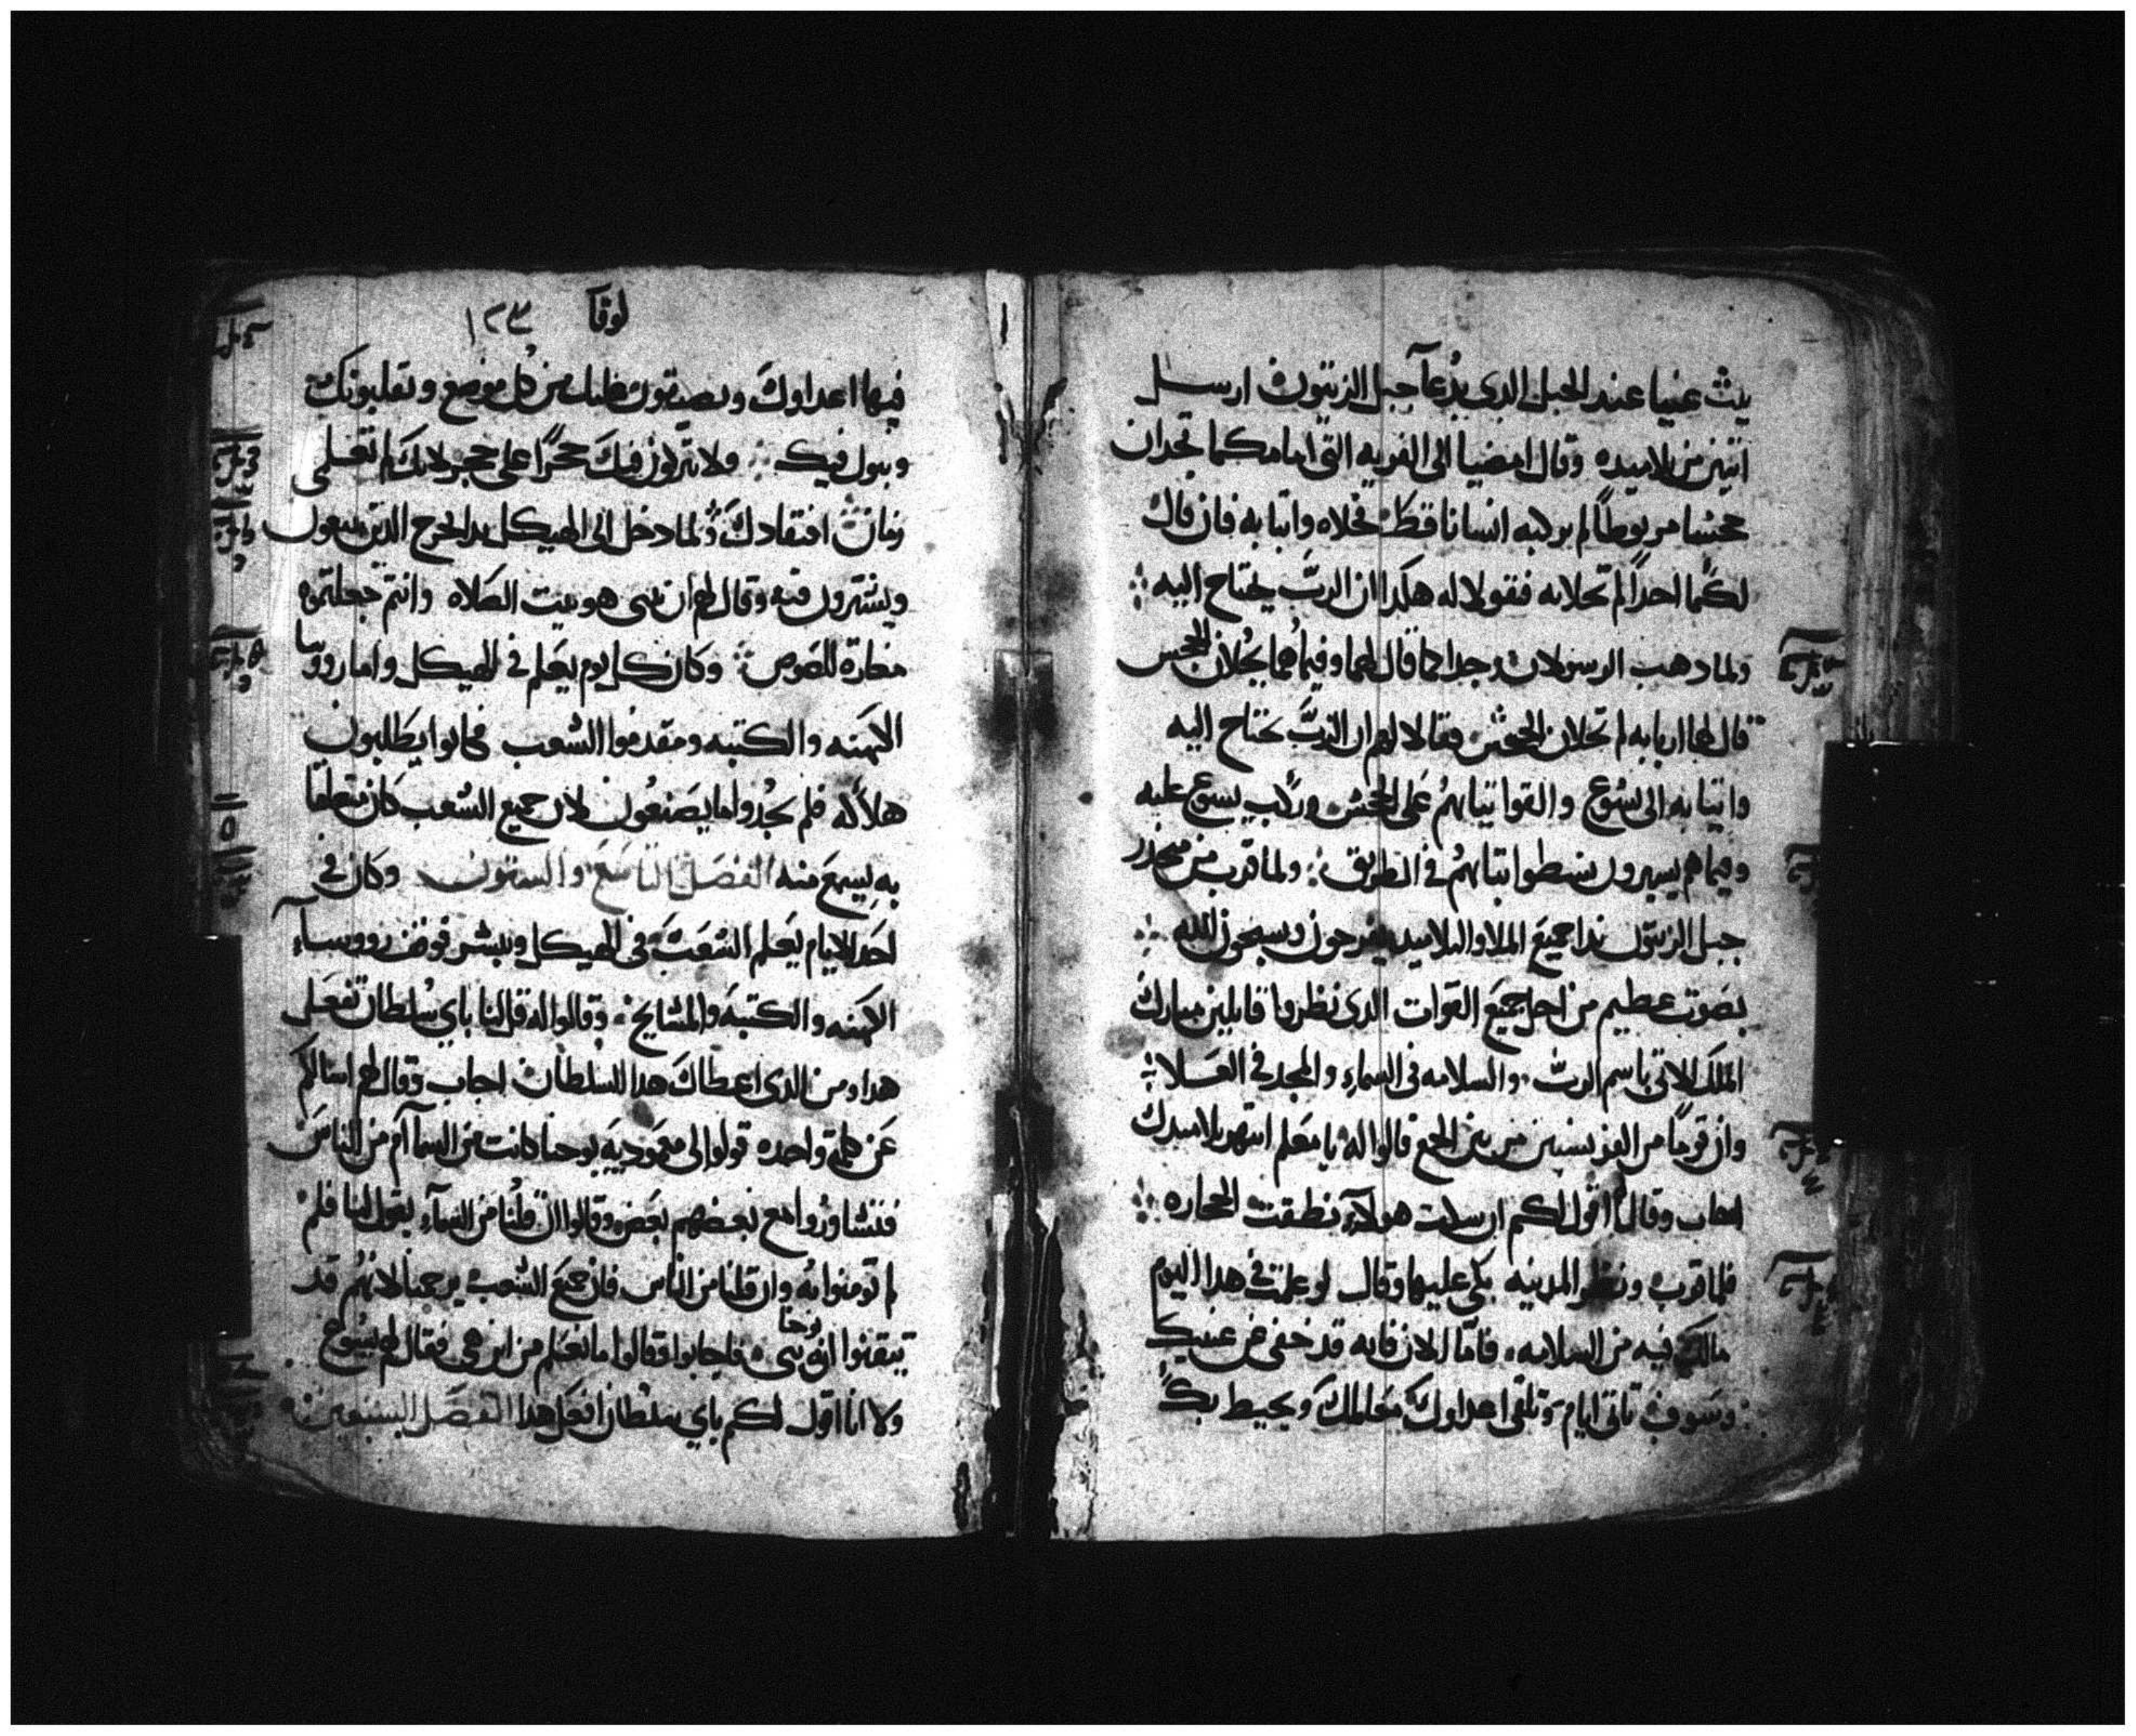 يت عنيا عند الجبل الدى يدعآ جبل الزيتون ارسل
اتنين من تلاميده وقال امضيا الى القريه التى امامكما تجدان
جحشا مربوطاً لم يركبه انسانا قط فحلاه واتيا به فان قال
لكما احداً لم تحلانه فقولا له هكدا ان الربّ يحتاج اليه
ولما دهب الرسولان وجدا كما قال لهما وفيما هما يحلان الجحش
قال لهما اربابه لم تحلان الجحش فقالا لهم ان الربّ يحتاج اليه
واتيا به الى يسوع والقوا تيابهم على الجحش وركب يسوع عليه
وفيما هم يسيرون بسطوا تيابهم في الطريق ولما قرب من منحدر
جبل الزيتون بدا جميع الملا والتلاميد يفرحون ويسبحون الله
بصوت عظيم من اجل جميع القوات الدى نظروا قايلين مبارك
الملك الاتى باسم الربّ والسلامه فى السماء والمجد في العلا
وان قوماً من الفريسيين من بين الجمع قالوا له يا معلم انتهر تلاميدك
اجاب وقال اقول لكم ان سكت هولآء نطقت الحجاره
فلما قرب ونظر المدينه بكى عليها وقال لو علمت في هدا اليوم
مالك فيه من السلامه فامّا الان فانه قد خفى عن عينيك
وسوف تاتى ايام وتلقى اعداوك معالمك ويحيط بك
لوقآ ١٢٣
فيها اعداوك ويضيقون عليك من كل موضع ويقلبونك
وبنوك فيك ولا يتركون فيك حجراً على حجر لانك لم تعلمى
زمان افتقادك ولما دخل الى الهيكل بدا يخرج الدين يبيعون
ويشترون فيه وقال لهم ان بيتى هو بيت الصلاه وانتم جعلتموه
مغارة للصوص وكان كل يوم يعلم في الهيكل واما روسا
الكهنه والكتبه ومقدموا الشعب فكانوا يطلبون
هلاكه فلم يجدوا ما يصنعون لان جميع الشعب كان متعلقا
به يسمع منه الفصل التاسع والستون وكان في
احد الايام يعلم الشعب فى الهيكل ويبشر فوقف رووسآء
الكهنه والكتبة والمشايخ وقالوا له قل لنا باي سلطان تفعل
هدا ومن الدى اعطاك هدا السلطان اجاب وقال لهم اسالكم
عن كلمة واحده قولوا لى معموديه يوحنا كانت من السمآ آم من الناس
فتشاوروا مع بعضهم بعض وقالوا ان قلنا من السمآء يقول لنا فلم
لم تومنوا به وان قلنا من الناس فان جميع الشعب يرجمنا لانهم قد
تيقنوا ان يوحنا نبى فاجابوا وقالوا ما نعلم من اين هى فقال لهم يسوع
ولا انا اقول لكم باي سلطان افعل هدا الفصل السبعين